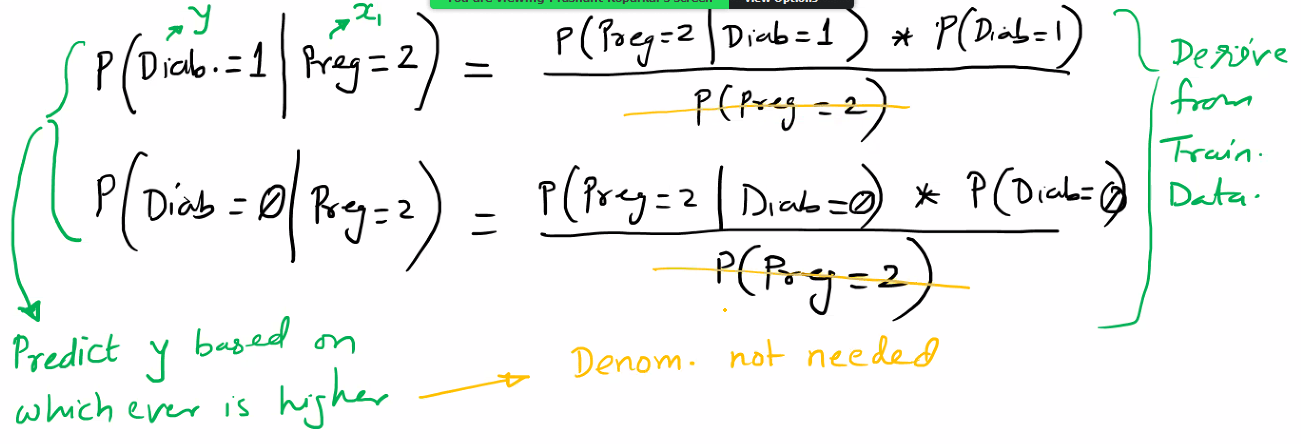 You are viewing Prashant Koparkar's screen View Options
y x₁
P(Diab.=1 | Preg=2) = P(Preg=2 | Diab=1) * P(Diab=1)
P(Preg=2)
P(Diab=0 | Preg=2) = P(Preg=2 | Diab=0) * P(Diab=0)
P(Preg=2)
Derive
from
Train.
Data.
Predict y based on
which ever is higher
Denom. not needed